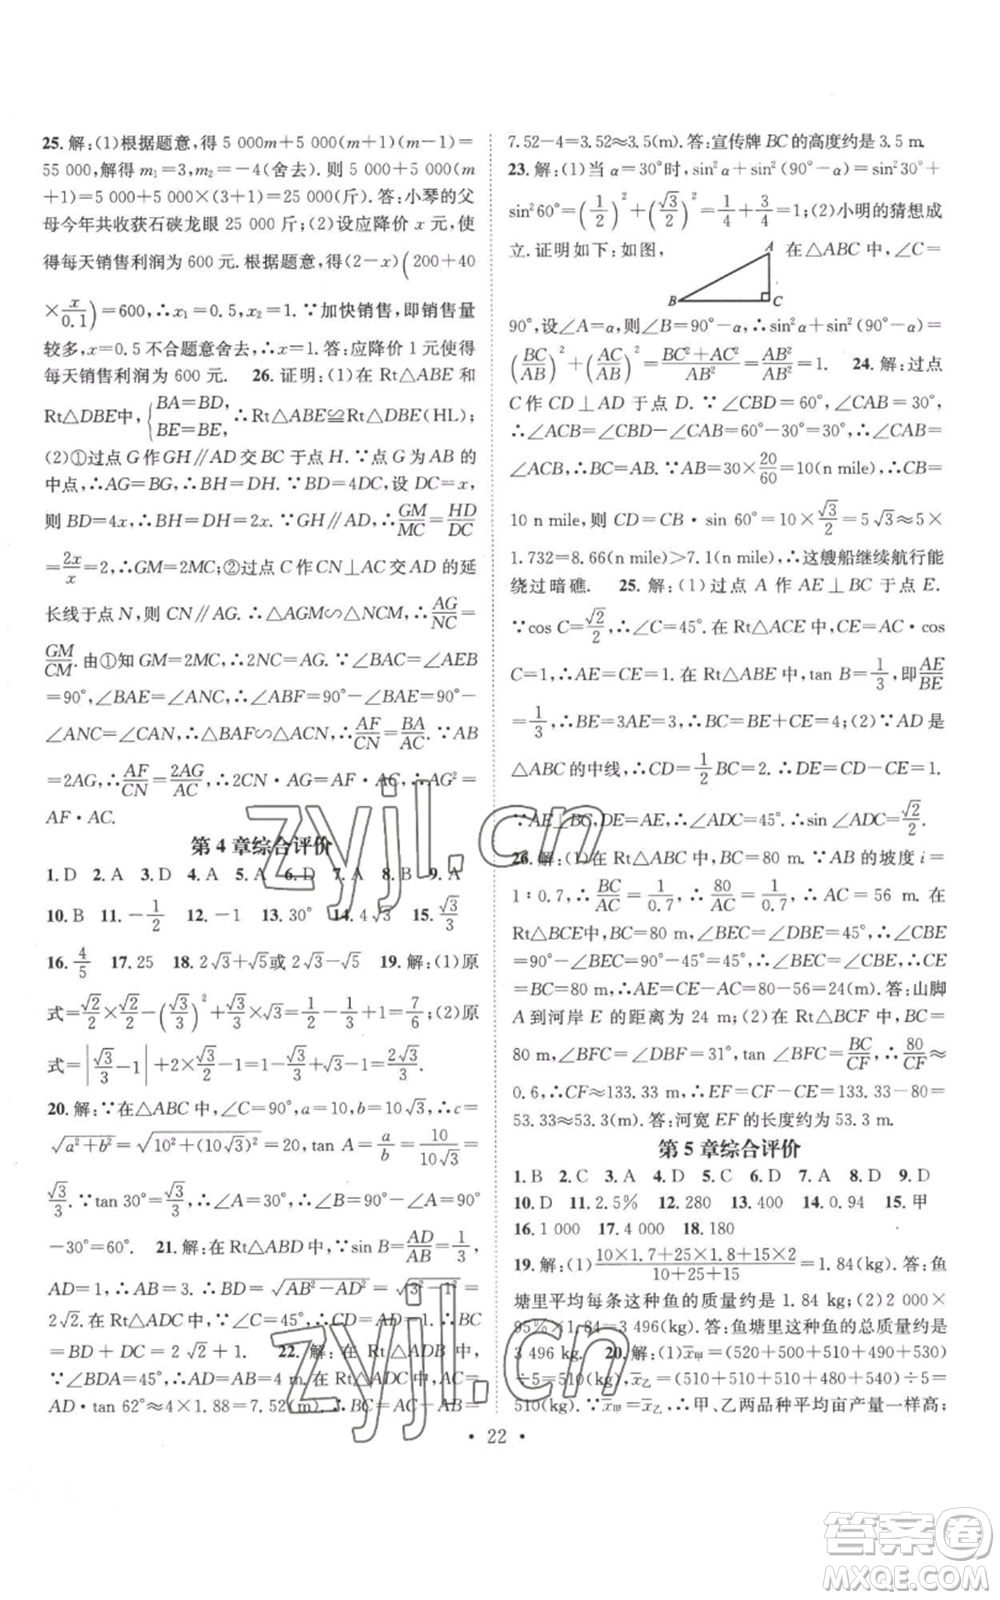 25. 解:(1)根据题意,得 5 000m+5 000(m+1)(m−1)=
55 000,解得 m₁=3,m₂=−4(舍去). 则 5 000m(m
+1)=5 000×(3+1)=25 000(斤). 答:小琴的父
母今年共收获石硖龙眼 25 000 斤;(2)设应降价 x 元,使
得每天销售利润为 600 元. 根据题意,得(2−x)(200+40
×x/0.1)=600,∴x₁=0.5,x₂=1. ∵加快销售,即销售量
较多,x=0.5 不合题意舍去,∴x=1. 答:应降价 1 元使得
每天销售利润为 600 元. 26. 证明:(1)在 Rt△ABE 和
Rt△DBE中,{BA=BD, BE=BE, ∴Rt△ABE≌Rt△DBE(HL);
(2)①过点 G 作 GH∥AD 交 BC 于点 H. ∵点 G 为 AB 的
中点,∴AG=BG,∴BH=DH. ∵BD=4DC,设 DC=x,
则 BD=4x,∴BH=DH=2x. ∵GH∥AD,∴GM/MC=HD/DC
=2x/x=2,∴GM=2MC;②过点 C 作 CN⊥AC 交 AD 的延
长线于点 N,则 CN∥AG. ∴△AGM∽△NCM,∴AG/NC=
GM/CM. 由①知 GM=2MC,∴2NC=AG. ∵∠BAC=∠AEB
=90°,∠BAE=∠ANC,∴∠ABF=90°−∠BAE,∠CAN
=90°−∠CAN,∴△BAF∽△ANC,∴AF/CN=BA/AC. ∵AB
=2AG,∴AF/CN=2AG/AC,∴2CN·AG=AF·AC,∴AG²=
AF·AC.
第 4 章综合评价
1. D 2. A 3. D 4. A 5. A 6. D 7. A 8. B 9. A
10. B 11. −1/2 12. −1 13. 30° 14. 4√3 15. √3/3
16. 4/5 17. 25 18. 2√3+√5或 2√3−√5 19. 解:(1)原
式=√2/2×√2/2−(√3/3)²+1=1/2−1/3+1=7/6;(2)原
式=|√3/3−1|+2×√3/2=1−√3/3+√3=1+2√3/3.
20. 解:∵在△ABC 中,∠C=90°,a=10,b=10√3,∴c=
√(a²+b²)=√(10²+(10√3)²)=20,tan A=a/b=10/10√3=
√3/3. ∵tan 30°=√3/3,∴∠A=30°,∴∠B=90°−∠A=90°
−30°=60°. 21. 解:在 Rt△ABD 中,∵sin B=AD/AB=1/3,
AD=1,∴AB=3. ∴BD=√(AB²−AD²)=√(3²−1²)=
2√2. 在 Rt△ADC 中,∵∠C=45°,∴CD=AD=1. ∴BC
=BD+DC=2√2+1. 22. 解:在 Rt△ADB 中,
∵∠BDA=45°,∴AB=DA=4 m. 在 Rt△ADC 中,AC=
AD·tan 62°≈4×1.88=7.52(m). ∴BC=AC−AB≈
7.52−4=3.52≈3.5(m). 答:宣传牌 BC 的高度约是 3.5 m.
23. 解:(1)当 α=30°时,sin²α+sin²(90°−α)=sin²30°+
sin²60°=(1/2)²+(√3/2)²=1/4+3/4=1;(2)小明的猜想成
立. 证明如下:如图, 在△ABC 中,∠C=
A
B
C
90°,设∠A=α,则∠B=90°−α,∴sin²α+sin²(90°−α)=
(BC/AB)²+(AC/AB)²=BC²+AC²/AB²=AB²/AB²=1. 24. 解:过点
C 作 CD⊥AD 于点 D. ∵∠CBD=60°,∠CAB=30°,
∴∠ACB=∠CBD−∠CAB=60°−30°=30°,∴∠CAB=
∠ACB,∴BC=AB. ∵AB=30×20/60=10(n mile),∴CB=
10 n mile,则 CD=CB·sin 60°=10×√3/2=5√3≈5×
1.732=8.66(n mile)>7.1(n mile),∴这艘船继续航行能
绕过暗礁. 25. 解:(1)过点 A 作 AE⊥BC 于点 E.
∵cos C=√2/2,∴∠C=45°. 在 Rt△ACE 中,CE=AC·cos
C=1,∴AE=CE=1. 在 Rt△ABE 中,tan B=1/3,即AE/BE
=1/3,∴BE=3AE=3,∴BC=BE+CE=4;(2)∵AD 是
△ABC 的中线,∴CD=1/2BC=2. ∴DE=CD−CE=1.
∵AE⊥BC,DE=AE,∴∠ADC=45°. ∴sin∠ADC=√2/2.
26. 解:(1)在 Rt△ABC 中,BC=80 m. ∵AB 的坡度 i=
1∶0.7,∴BC/AC=1/0.7,∴80/AC=1/0.7,∴AC=56 m. 在
Rt△BCE中,BC=80 m,∠BEC=∠DBE=45°,∴∠CBE=
90°−∠BEC=90°−45°=45°,∴∠BEC=∠CBE,∴CE
=BC=80 m. ∴AE=CE−AC=80−56=24(m). 答:山脚
A 到河岸 E 的距离为 24 m;(2)在 Rt△BCF 中,BC=
80 m,∠BFC=∠DBF=31°,tan∠BFC=BC/CF,∴80/CF≈
0.6,∴CF≈133.33 m,∴EF=CF−CE=133.33−80=
53.33≈53.3(m). 答:河宽 EF 的长度约为 53.3 m.
第 5 章综合评价
1. B 2. C 3. A 4. D 5. C 6. D 7. A 8. D 9. D
10. D 11. 2.5% 12. 280 13. 400 14. 0.94 15. 甲
16. 1 000 17. 4 000 18. 180
19. 解:(1)10×1.7+25×1.8+15×2/10+25+15=1.84(kg). 答:鱼
塘里平均每条这种鱼的质量约是 1.84 kg;(2)2 000×
95%×1.84=3 496(kg). 答:鱼塘里这种鱼的总质量约是
3 496 kg. 20. 解:(1)x̄甲=(520+500+510+490+530)
÷5=510(kg),x̄乙=(510+510+512+480+540)÷5=
510(kg). ∵x̄甲=x̄乙,∴甲、乙两品种平均亩产量一样高;
· 22 ·
zyjl.cn
zyjl.cn
答案圈
MXQE.COM